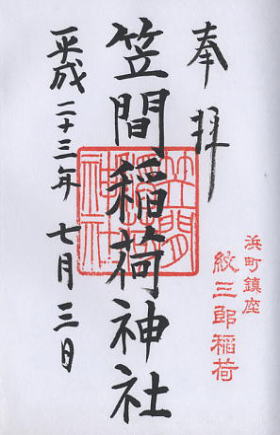 奉拝
浜町鎮座
紋三郎稲荷
笠間稲荷神社
笠間
稲荷
神社
平成二十三年七月三日